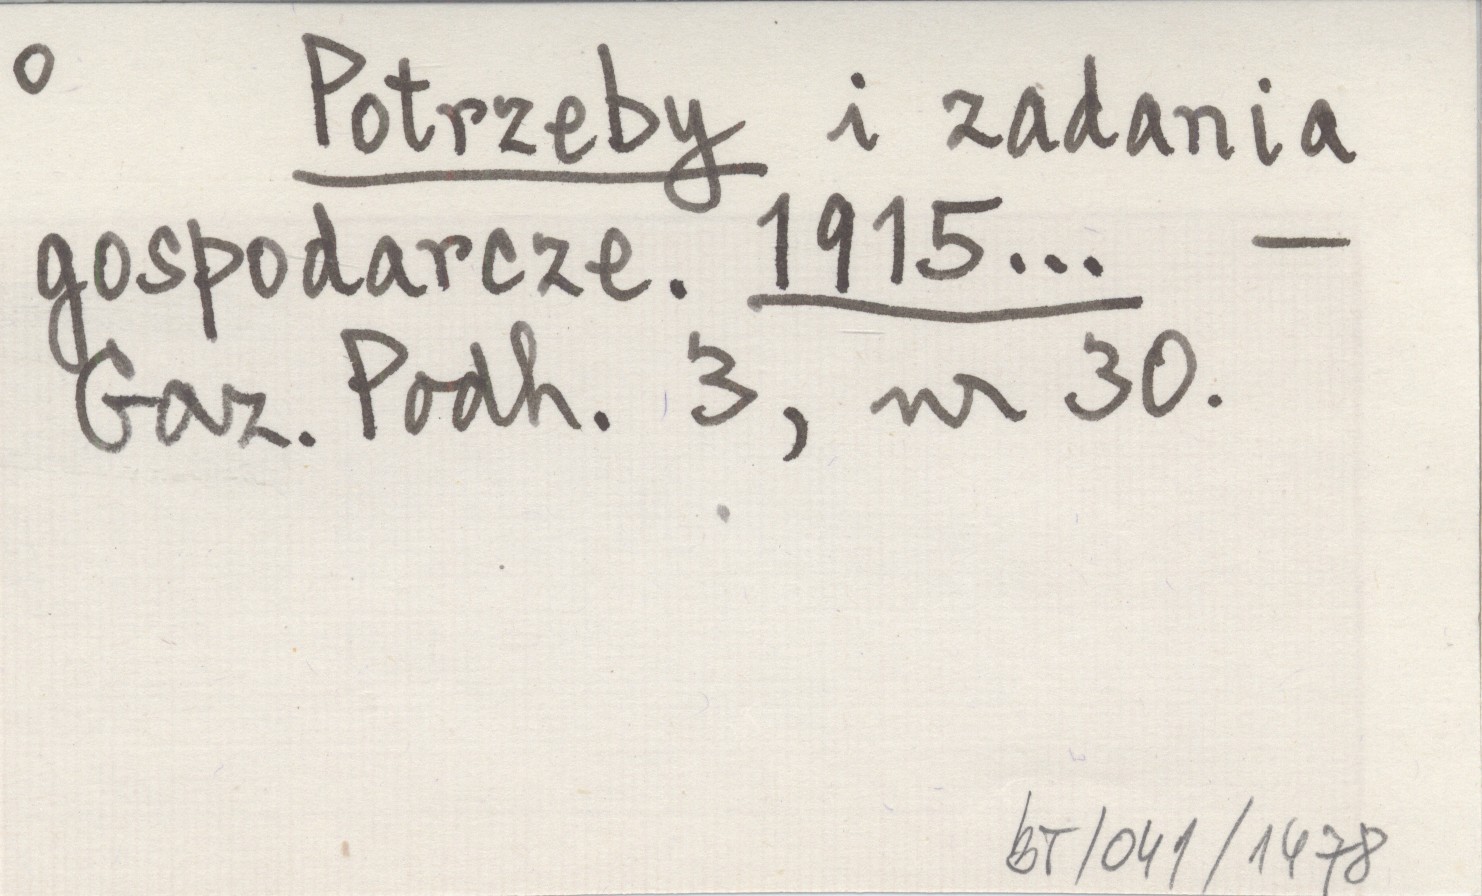 o Potrzeby i zadania
gospodarcze. 1915... —
Gaz. Podh. 3, nr 30.
bT/041/1478